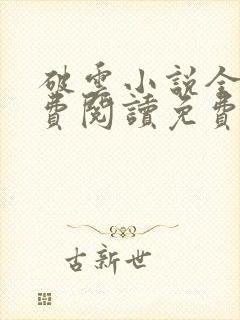 破雲小說全
費閱讀免費
古新世